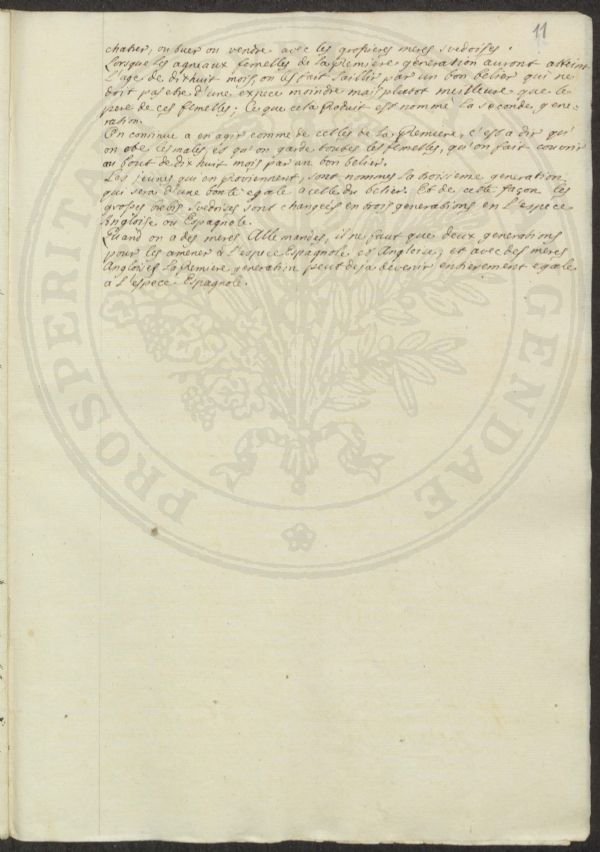 11
chatrer, ou tuer ou vendre avec les grossieres meres suedoises.
Lorsque les agneaux femelles de la premiere generation auront atteint
l'age de dixhuit mois, on les fait saillir par un bon belier qui ne
doit pas etre d'une espece moindre mais plutot meilleure que le
pere de ces femelles; Ce que cela Produit est nommé la seconde gene-
ration.
On continue a en agir comme de celles de la Premiere, c'est a dir qu'
on ote les males, et qu'on garde toutes les femelles, qu'on fait couvrir
au bout de dix huit mois par un bon belier.
Les jeunes qui en proviennent, sont nommés la troisieme generation
qui sera d'une bonté egale a celle du belier. Et de cette façon les
grosses brebis suedoises sont changées en trois generations en l'espece
Angloise ou Espagnole.
Quand on a des meres Allemandes, il ne faut que deux generations
pour les amener a l'espece Espagnole et Angloise; et avec des meres
Angloises la premiere generation peut deja devenir entierement egale
a l'espece Espagnole.
PROSPERITA GENDAE